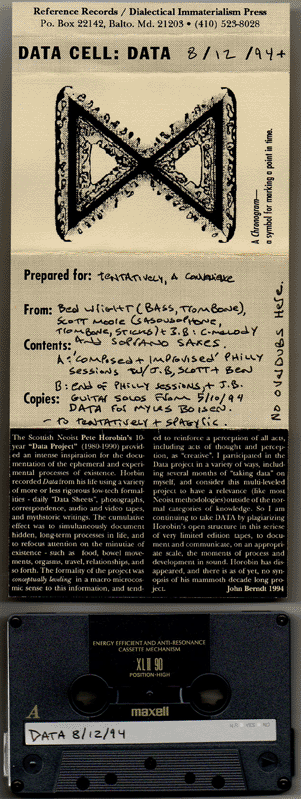 Reference Records / Dialectical Immaterialism Press
Po. Box 22142, Balto. Md. 21203 • (410) 523-8028
DATA CELL: DATA 8/12/94+
A Chronogram—
a symbol for marking a point in time.
Prepared for: TENTATIVELY, A CONVENIENCE
From: BEN WRIGHT (BASS, TROMBONE),
SCOTT MOORE (SASOUSOPHONE,
TROMBONE, STICKS) + J.B: C-MELODY
Contents: AND SOPRANO SAXES.
A: 'COMPOSED + IMPROVISED' PHILLY
SESSIONS W/ J.B, SCOTT + BEN
B: END OF PHILLY SESSIONS, + J.B.
Copies: GUITAR SOLOS FROM 5/10/94
DATA FOR MYLES BOISEN.
- TO TENTATIVELY +
NO OVERDUBS HERE.
The Scottish Neoist Pete Horobin's 10-
year "Data Project" (1980-1990) provid-
ed an intense inspiration for the docu-
mentation of the ephemeral and experi-
mental processes of existence. Horbin
recorded Data from his life using a variety
of more or less rigorous low-tech formal-
ities - daily "Data Sheets", photographs,
correspondence, audio and video tapes,
and mythstoric writings. The cumulative
effect was to simultaneously document
hidden, long-term processes in life, and
to refocus attention on the minutiae of
existence - such as food, bowel move-
ments, orgasms, travel, relationships, and
so forth. The formality of the project was
conceptually leveling in a macro microcos-
mic sense to this information, and tend-
ed to reinforce a perception of all acts,
including acts of thought and percep-
tion, as "creative". I participated in the
Data project in a variety of ways, includ-
ing several months of "taking data" on
myself, and consider this multi-leveled
project to have a relevance (like most
Neoist methodologies) outside of the nor-
mal categories of knowledge. So I am
continuing to take DATA by plagiarizing
Horobin's open structure in this series
of very limited edition tapes, to docu-
ment and communicate, on an appropri-
ate scale, the moments of process and
development in sound. Horobin has dis-
appeared, and there is as of yet, no syn-
opsis of his mammoth decade long pro-
ject. John Berndt 1994
ENERGY EFFICIENT AND ANTI-RESONANCE
CASSETTE MECHANISM
XL II 90
POSITION•HIGH
maxell
A
DATA 8/12/94